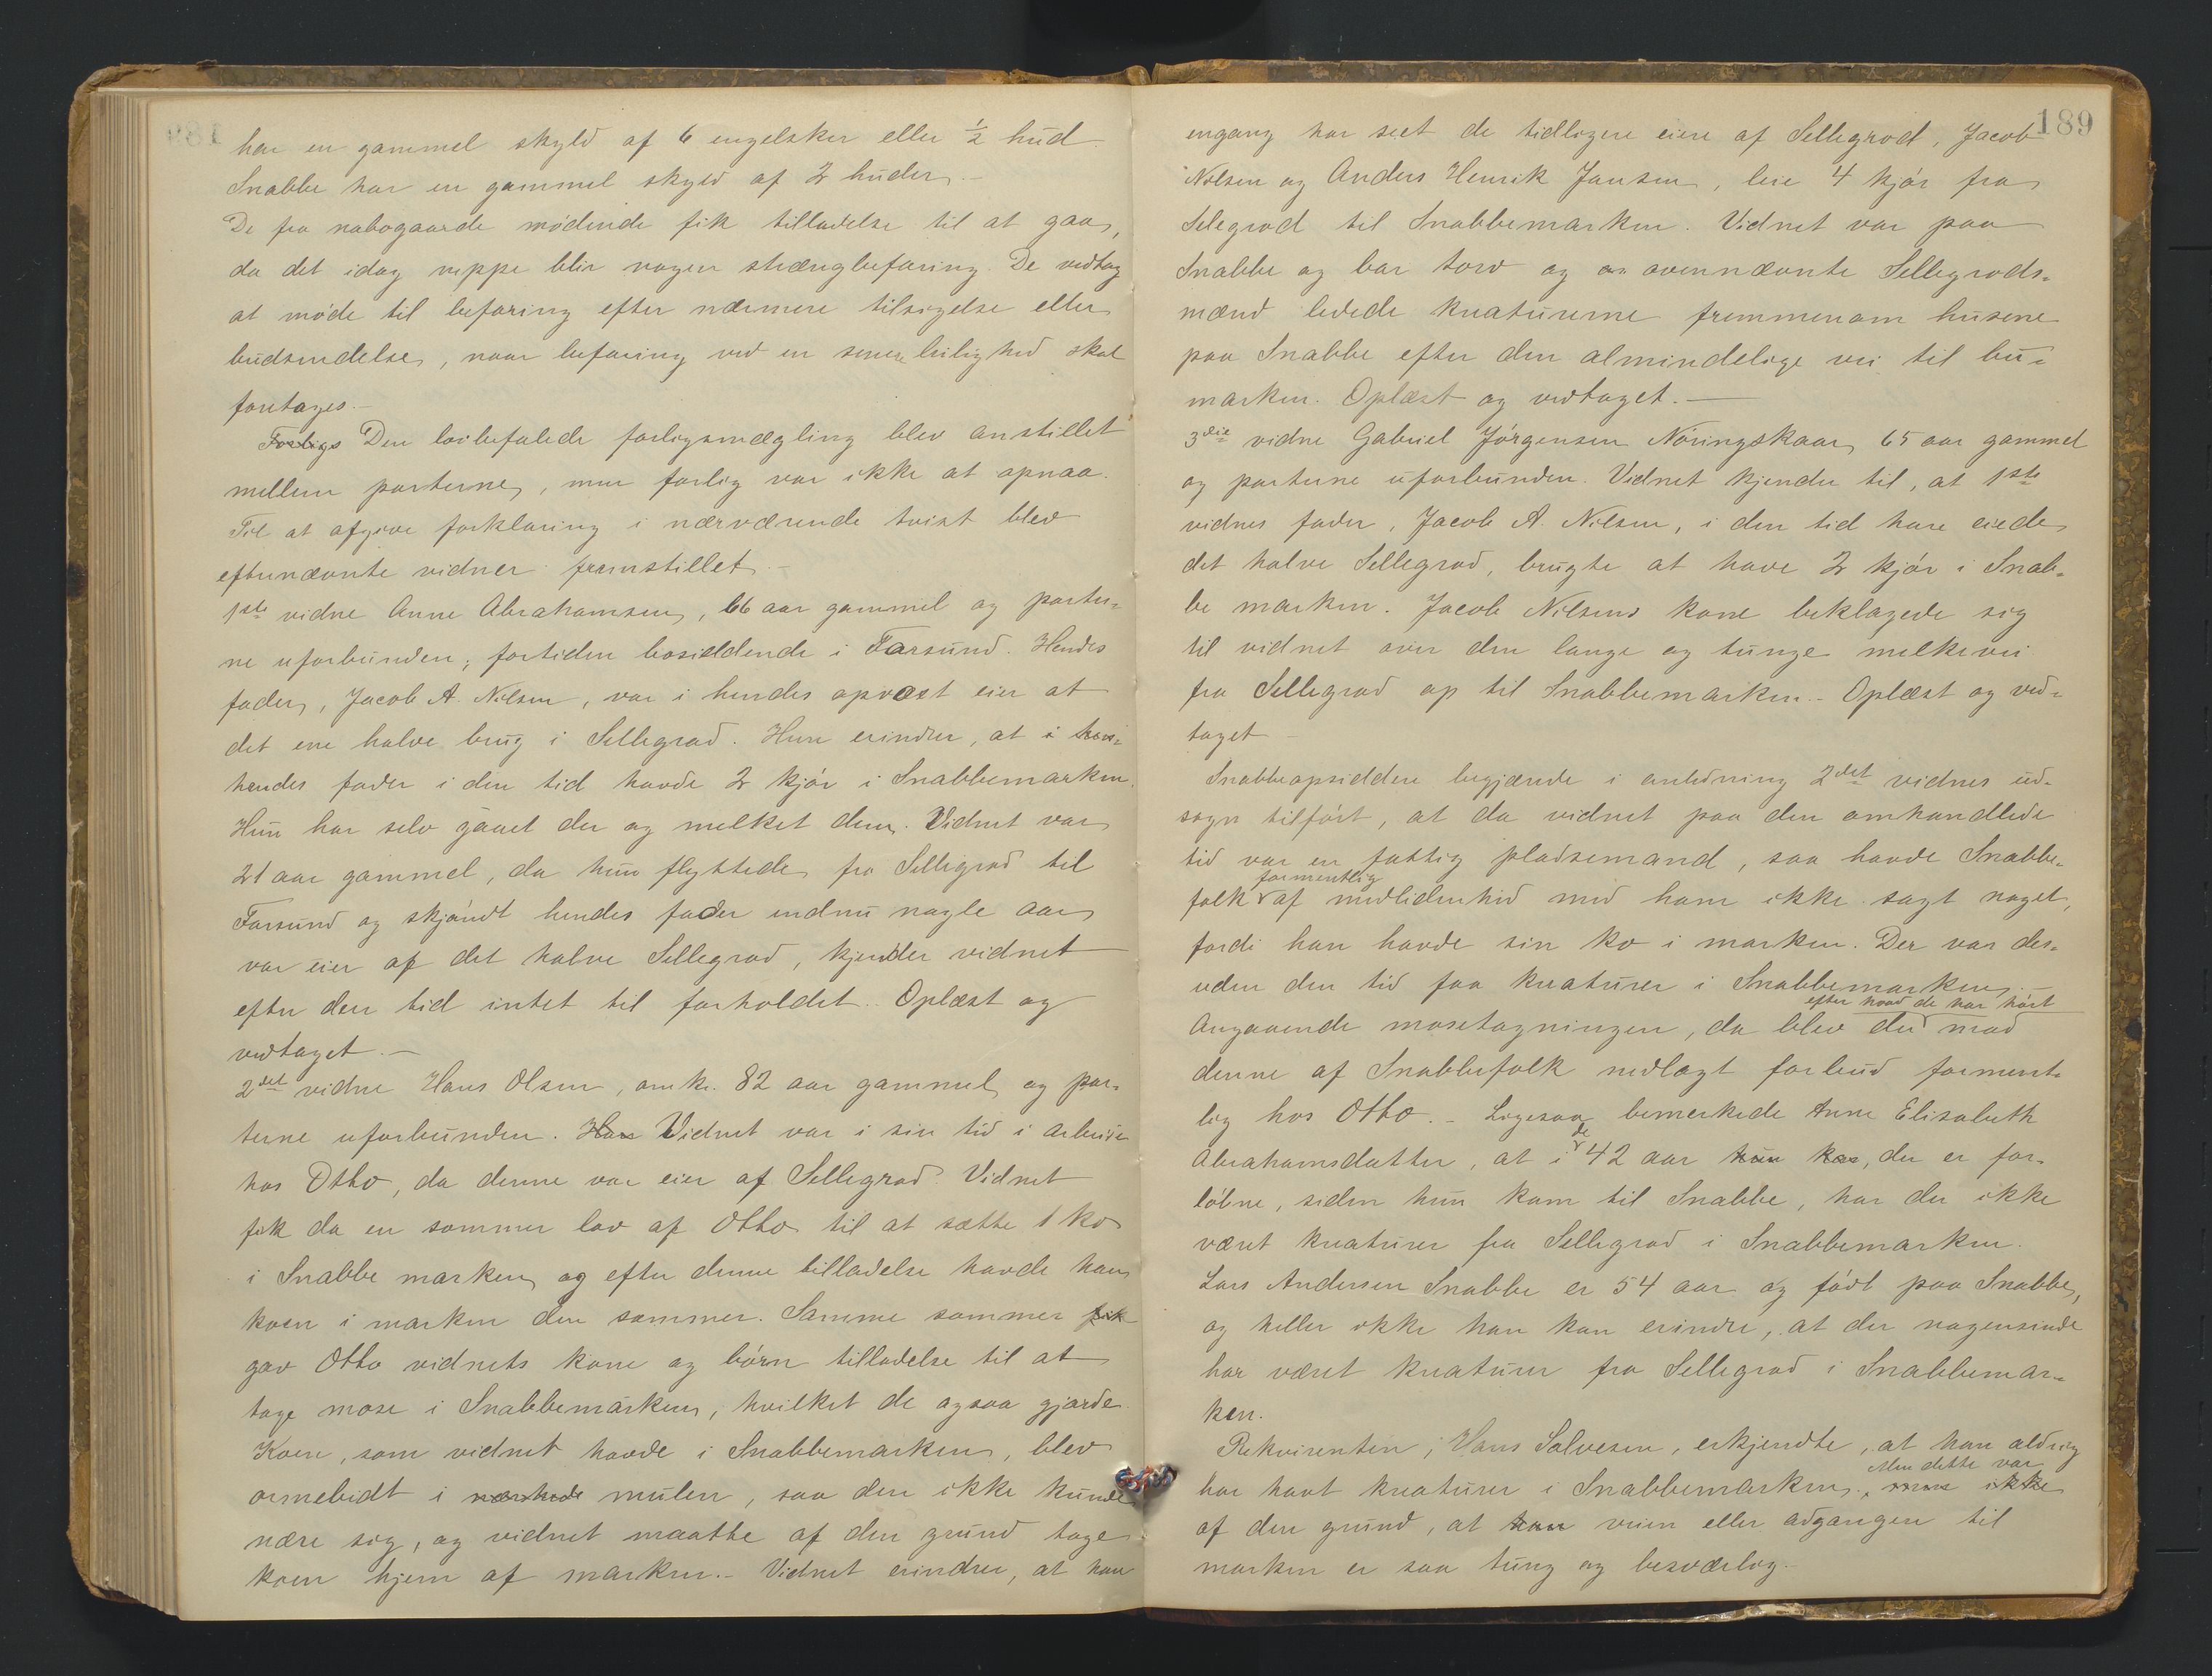 har en gammel skyld af 6 engelsker eller ½ hud
Snabbe har en gammel skyld af 2 huder.-
De fra nabogaarde mödende fik tilladelse til at gaa,
da det idag neppe blir nogen strængbefaring. De vedtog
at möde til befaring efter nærmere tilsigelse eller
budsendelse, naar befaring ved en senere leilighed skal
foretages.-
Forligs Den lovbefalede forligsmægling blev anstillet
mellem parterne, men forlig var ikke at opnaa.
Til at afgive forklaring i nærværende tvist blev
efternævnte vidner fremstillet.-
1ste vidne Anne Abrahamsen, 66 aar gammel og parter-
ne uforbunden, fortiden bosiddende i Farsund. Hendes
fader, Jacob A. Nilsen, var i hendes opvæxt eier at
det ene halve brug i Sellegrod. Hun erindrer, at i hen-
hendes fader i den tid havde 2 kjör i Snabbemarken.
Hun har selv gaaet der og melket dem. Vidnet var
21 aar gammel, da hun flyttede fra Sellegrod til
Farsund og skjöndt hendes fader endnu nogle aar
var eier af det halve Sellegrod, kjender vidnet
efter den tid intet til forholdet. Oplæst og
vedtaget.-
2det vidne Hans Olsen, omk. 82 aar gammel og par-
terne uforbunden. Han Vidnet var i sin tid i arbeide
hos Otto, da denne var eier af Sellegrod. Vidnet
fik da en sommer lov af Otto til at sætte 1 ko
i Snabbe marken og efter denne tilladelse havde han
koen i marken den sommer. Samme sommer fik
gav Otto vidnets kone og börn tilladelse til at
tage mose i Snabbemarken, hvilket de ogsaa gjorde.
Koen, som vidnet havde i Snabbemarken, blev
ormebidt i mulen, saa den ikke kunde
nære sig, og vidnet maatte af den grund tage
koen hjem af marken.- Vidnet erindrer, at han
189
engang har seet de tidligere eiere af Sellegrod, Jacob
Nilsen og Anders Henrik Jansen, leie 4 kjör fra
Selegrod til Snabbemarken. Vidnet var paa
Snabbe og bar torv og ovennævnte Sellegrods-
mænd ledede kreaturerne fremmenom husene
paa Snabbe efter den almindelige vei til bu-
marken. Oplæst og vedtaget.-
3die vidne Gabriel Jörgensen Nöringskaar, 65 aar gammel
og parterne uforbunden. Vidnet kjender til, at 1ste
vidnes fader, Jacob A. Nilsen, i den tid han eiede
det halve Sellegrod, brugte at have 2 kjör i Snab-
be marken. Jacob Nilsens kone beklagede sig
til vidnet over den lange og tunge melkevei
fra Sellegrod op til Snabbemarken.- Oplæst og ved-
taget-
Snabbeopsiddere begjærede i anledning 2det vidnes ud-
sagn tilfört, at da vidnet paa den omhandlede
tid var en fattig pladsemand, saa havde Snabbe-
formentlig
folk af medlidenhed med ham ikke sagt noget,
fordi han havde sin ko i marken. Der var des-
uden den tid faa kreaturer i Snabbemarken.-
efter hvad de har hört
Angaaende mosetagningen, da blev der mod
denne af Snabbefolk nedlagt forbud forment-
lig hos Otto.- Ligesaa bemerkede Anne Elisabeth
de
Abrahamsdatter, at i 42 aar hun kom, der er for-
löbne, siden hun kom til Snabbe, har der ikke
været kreaturer fra Sellegrod i Snabbemarken.
Lars Andersen Snabbe er 54 aar og födt paa Snabbe,
og heller ikke han kan erindre, at der nogensinde
har været kreaturer fra Sellegrod i Snabbemar-
ken.
Rekvirenten, Hans Salvesen, erkjendte, at han aldrig
Men dette var
har havt kreaturer i Snabbemarken, men ikke
af den grund, at han veien eller adgangen til
marken er saa tung og besværlig.-